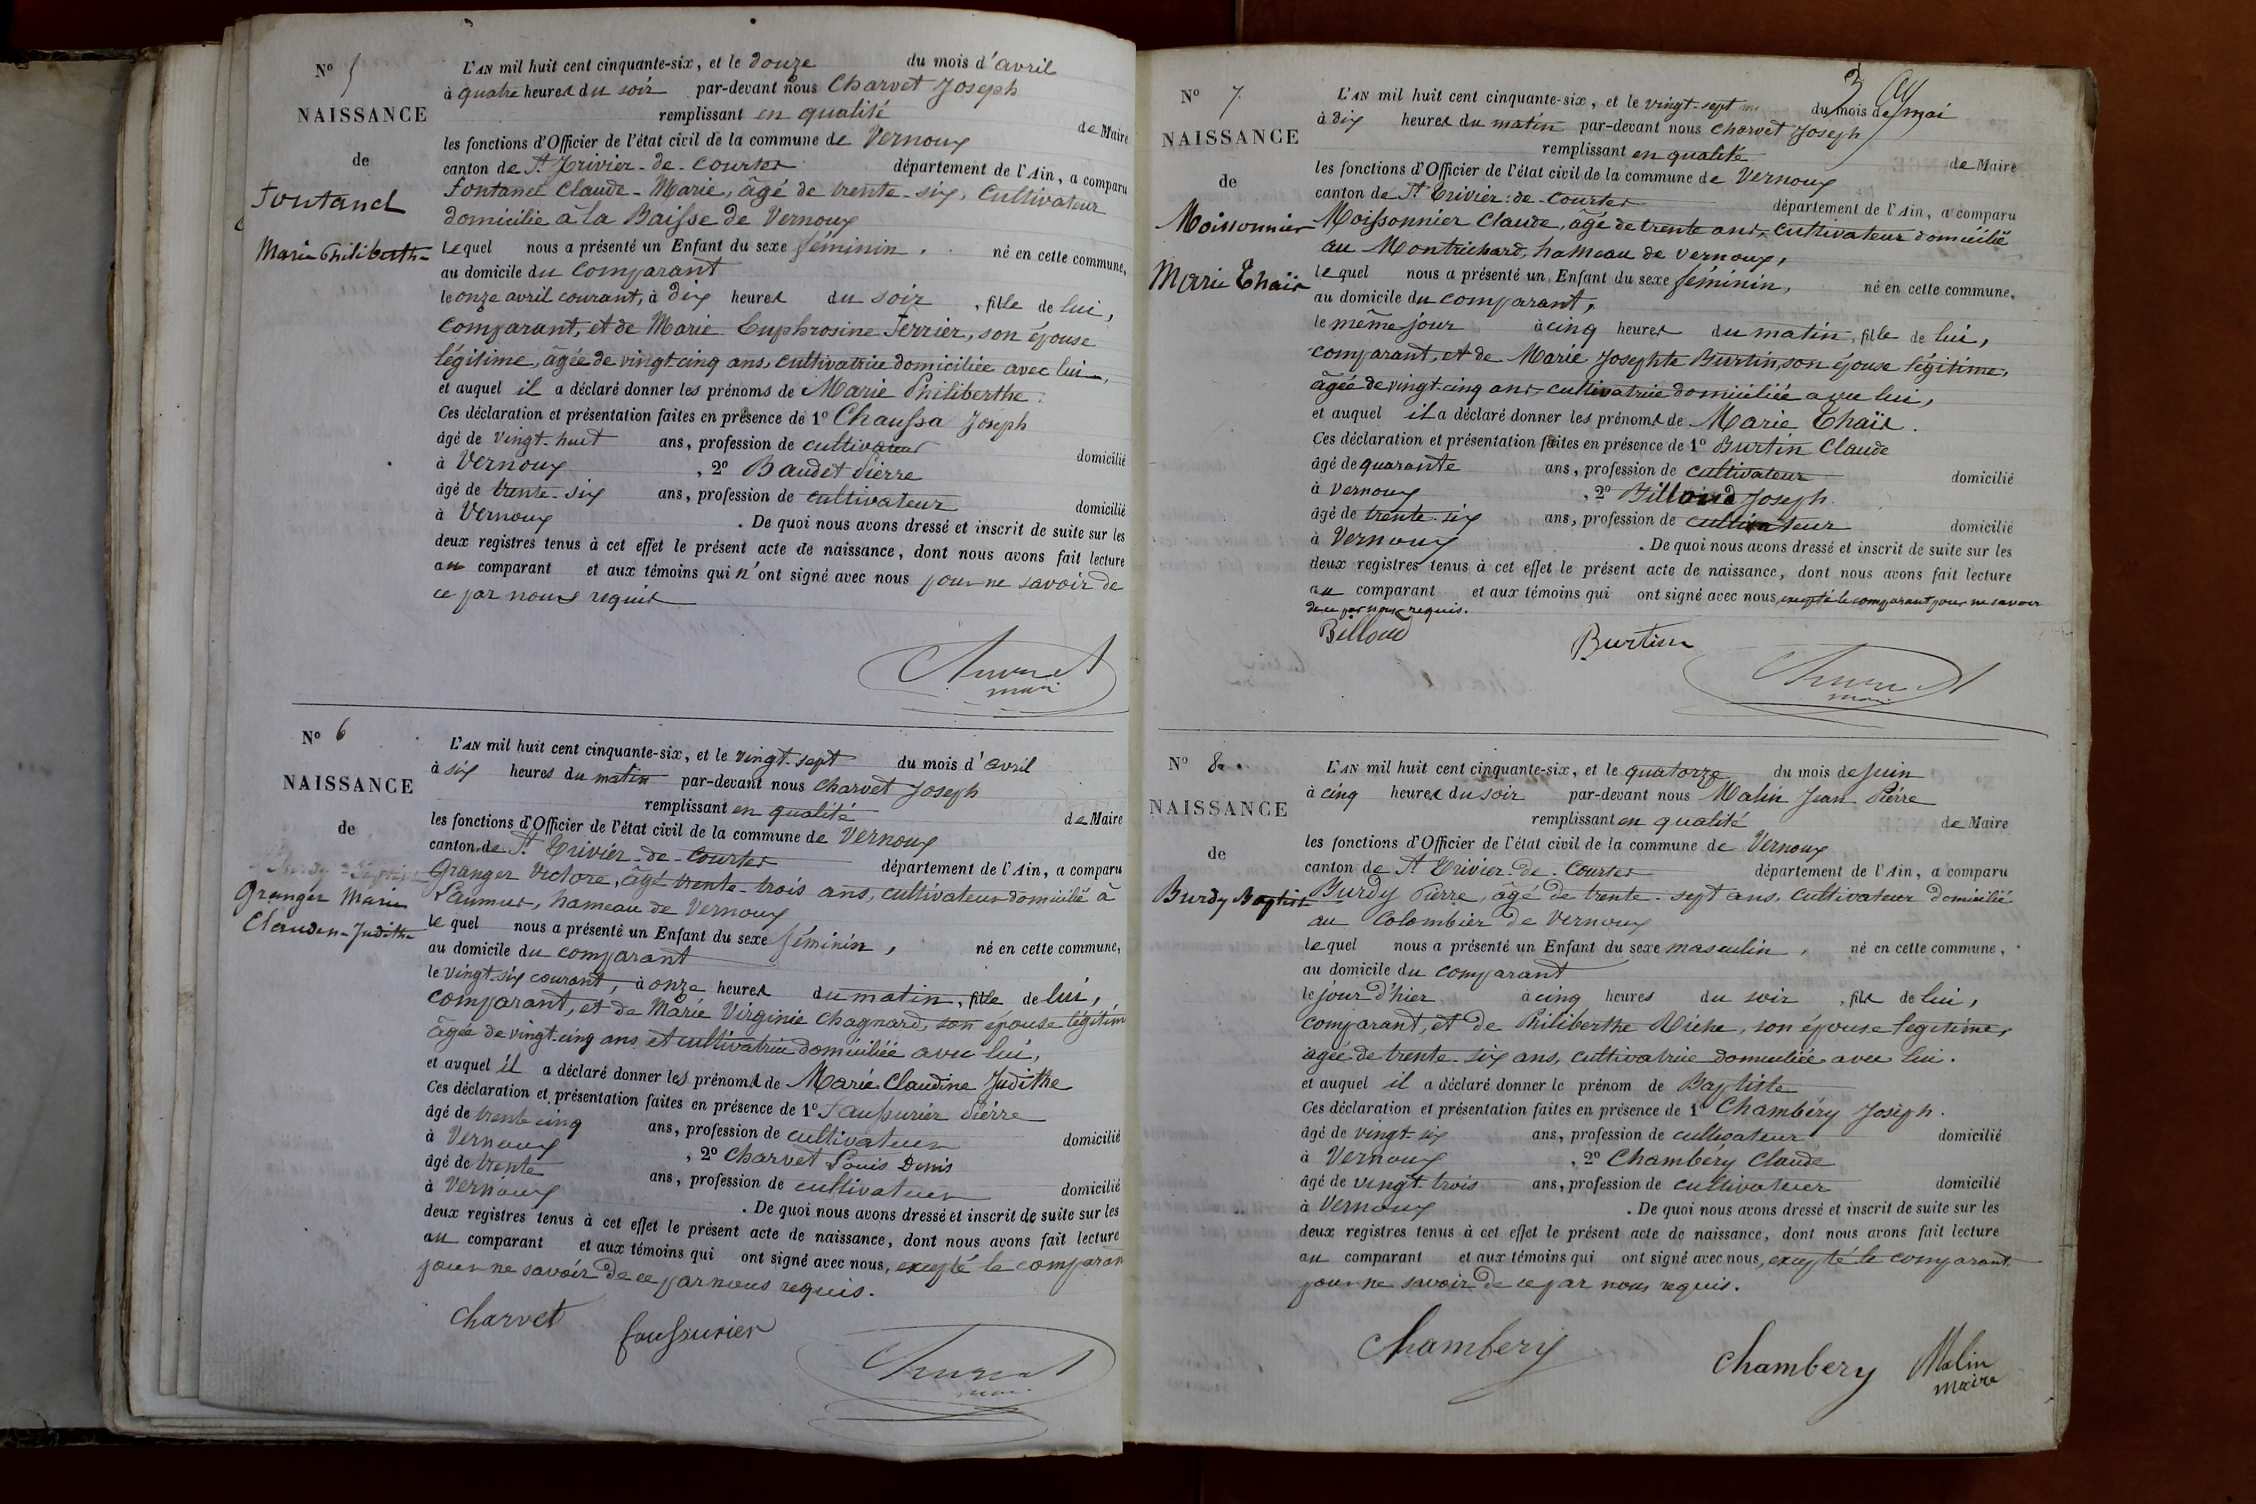 N° 5
NAISSANCE
de
Fontanel
Marie Philiberthe
L'AN mil huit cent cinquante-six, et le douze du mois d'avril
à quatre heures du soir par-devant nous Charvet Joseph
remplissant en qualité de Maire
les fonctions d'Officier de l'état civil de la commune de Vernoux
canton de St Trivier-de-Courtes département de l'Ain, a comparu
Fontanel Claude-Marie, âgé de trente-six, cultivateur
domicilié à la Baisse de Vernoux
lequel nous a présenté un Enfant du sexe féminin, né en cette commune,
au domicile du comparant
le onze avril courant, à dix heures du soir, fille de lui,
comparant, et de Marie Euphrosine Ferrier, son épouse
légitime, âgée de vingt-cinq ans, cultivatrice domiciliée avec lui,
et auquel il a déclaré donner les prénoms de Marie Philiberthe.
Ces déclaration et présentation faites en présence de 1° Chaussa Joseph
âgé de vingt-huit ans, profession de cultivateur domicilié
à Vernoux, 2° Baudet Pierre
âgé de trente-six ans, profession de cultivateur domicilié
à Vernoux. De quoi nous avons dressé et inscrit de suite sur les
deux registres tenus à cet effet le présent acte de naissance, dont nous avons fait lecture
au comparant et aux témoins qui n'ont signé avec nous pour ne savoir de
ce par nous requis
Charvet
maire
N° 6
NAISSANCE
de
Granger Marie
Claudine-Judithe
L'AN mil huit cent cinquante-six, et le vingt-sept du mois d'avril
à six heures du matin par-devant nous Charvet Joseph
remplissant en qualité de Maire
les fonctions d'Officier de l'état civil de la commune de Vernoux
canton de St Trivier-de-Courtes département de l'Ain, a comparu
Granger Victore, âgé trente-trois ans, cultivateur domicilié à
hameau de Vernoux
le quel nous a présenté un Enfant du sexe féminin, né en cette commune,
au domicile du comparant
le vingt-six courant, à onze heures du matin, fille de lui,
comparant, et de Marie Virginie Chagnard, son épouse légitime
âgée de vingt-cinq ans et cultivatrice domiciliée avec lui,
et auquel il a déclaré donner les prénoms de Marie Claudine Judithe
Ces déclaration et présentation faites en présence de 1° Faussurier Pierre
âgé de trente cinq ans, profession de cultivateur domicilié
à Vernoux, 2° Charvet Louis Denis
âgé de trente ans, profession de cultivateur domicilié
à Vernoux. De quoi nous avons dressé et inscrit de suite sur les
deux registres tenus à cet effet le présent acte de naissance, dont nous avons fait lecture
au comparant et aux témoins qui ont signé avec nous, excepté le comparant
pour ne savoir de ce par nous requis.
Charvet
faussurier
Charvet
maire
N° 7
NAISSANCE
de
Moissonnier
Marie Thaïs
L'AN mil huit cent cinquante-six, et le vingt-sept du mois de mai
à dix heures du matin par-devant nous Charvet Joseph
remplissant en qualité de Maire
les fonctions d'Officier de l'état civil de la commune de Vernoux
canton de St Trivier-de-Courtes département de l'Ain, a comparu
Moissonnier Claude, âgé de trente ans, cultivateur domicilié
au Montrichard, hameau de Vernoux,
lequel nous a présenté un Enfant du sexe féminin, né en cette commune,
au domicile du comparant,
le même jour à cinq heures du matin, fille de lui,
comparant, et de Marie Josephte Burtin, son épouse légitime,
âgée de vingt-cinq ans, cultivatrice domiciliée avec lui,
et auquel il a déclaré donner les prénoms de Marie Thaïs.
Ces déclaration et présentation faites en présence de 1° Burtin Claude
âgé de quarante ans, profession de cultivateur domicilié
à Vernoux, 2° Billoud Joseph
âgé de trente-six ans, profession de cultivateur domicilié
à Vernoux. De quoi nous avons dressé et inscrit de suite sur les
deux registres tenus à cet effet le présent acte de naissance, dont nous avons fait lecture
au comparant et aux témoins qui ont signé avec nous, excepté le comparant pour ne savoir
de ce par nous requis.
Billoud
Burtin
Charvet
maire
N° 8
NAISSANCE
de
Burdy Baptiste
L'AN mil huit cent cinquante-six, et le quatorze du mois de juin
à cinq heures du soir par-devant nous Malin Jean Pierre
remplissant en qualité de Maire
les fonctions d'Officier de l'état civil de la commune de Vernoux
canton de St Trivier-de-Courtes département de l'Ain, a comparu
Burdy Pierre, âgé de trente-sept ans, cultivateur domicilié
au Colombier de Vernoux
lequel nous a présenté un Enfant du sexe masculin, né en cette commune,
au domicile du comparant
le jour d'hier à cinq heures du soir, fils de lui,
comparant, et de Philiberthe Riche, son épouse legitime,
agée de trente-six ans, cultivatrice domiciliée avec lui.
et auquel il a déclaré donner le prénom de Baptiste
Ces déclaration et présentation faites en présence de 1° Chambéry Joseph.
âgé de vingt-six ans, profession de cultivateur domicilié
à Vernoux, 2° Chambéry Claude
âgé de vingt trois ans, profession de cultivateur domicilié
à Vernoux. De quoi nous avons dressé et inscrit de suite sur les
deux registres tenus à cet effet le présent acte de naissance, dont nous avons fait lecture
au comparant et aux témoins qui ont signé avec nous, excepté le comparant
pour ne savoir de ce par nous requis.
Chambery
Chambery
Malin
maire